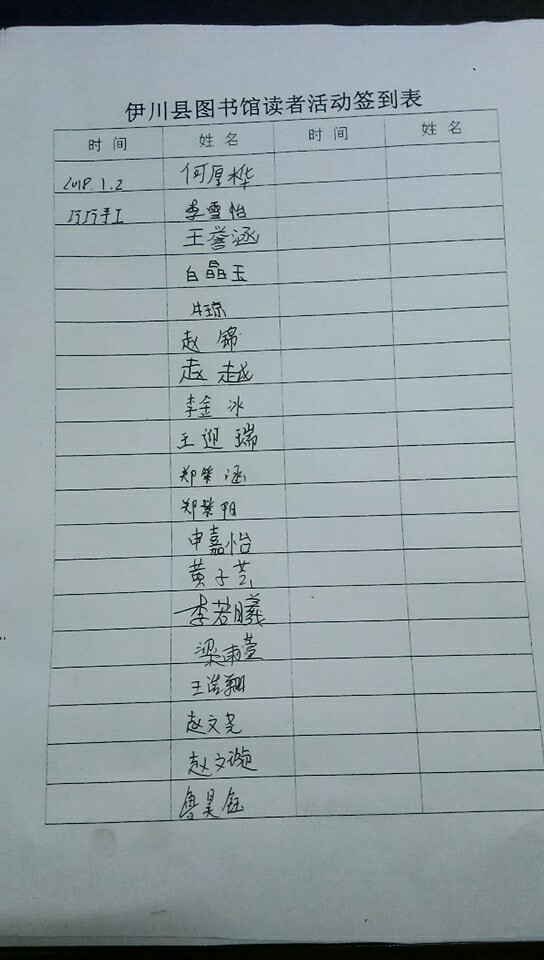 伊川县图书馆读者活动签到表
时 间 姓 名 时 间 姓 名
2018.1.2 何厚桦
巧巧手工 李雪怡
王誉涵
白晶玉
牛琼
赵 锦
赵 越
李金 冰
王迎 瑞
郑紫 涵
郑紫阳
申嘉怡
黄子芸
李若曦
梁雨萱
王浩翔
赵文尧
赵文璇
鲁昊钰